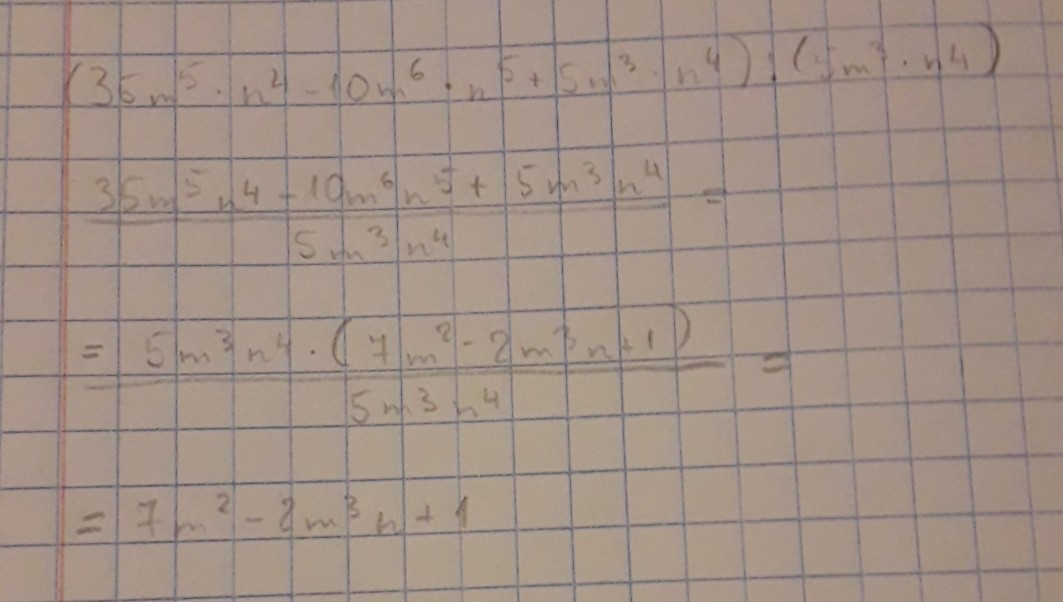 (35m⁵ · n⁴ - 10m⁶ · n⁵ + 5m³ · n⁴) : (5m³ · n4)
35m⁵n4 - 10m⁶n⁵ + 5m³n⁴ =
5m³n⁴
= 5m³n⁴ · (7m² - 2m³n + 1) =
5m³n⁴
= 7m² - 2m³n + 1